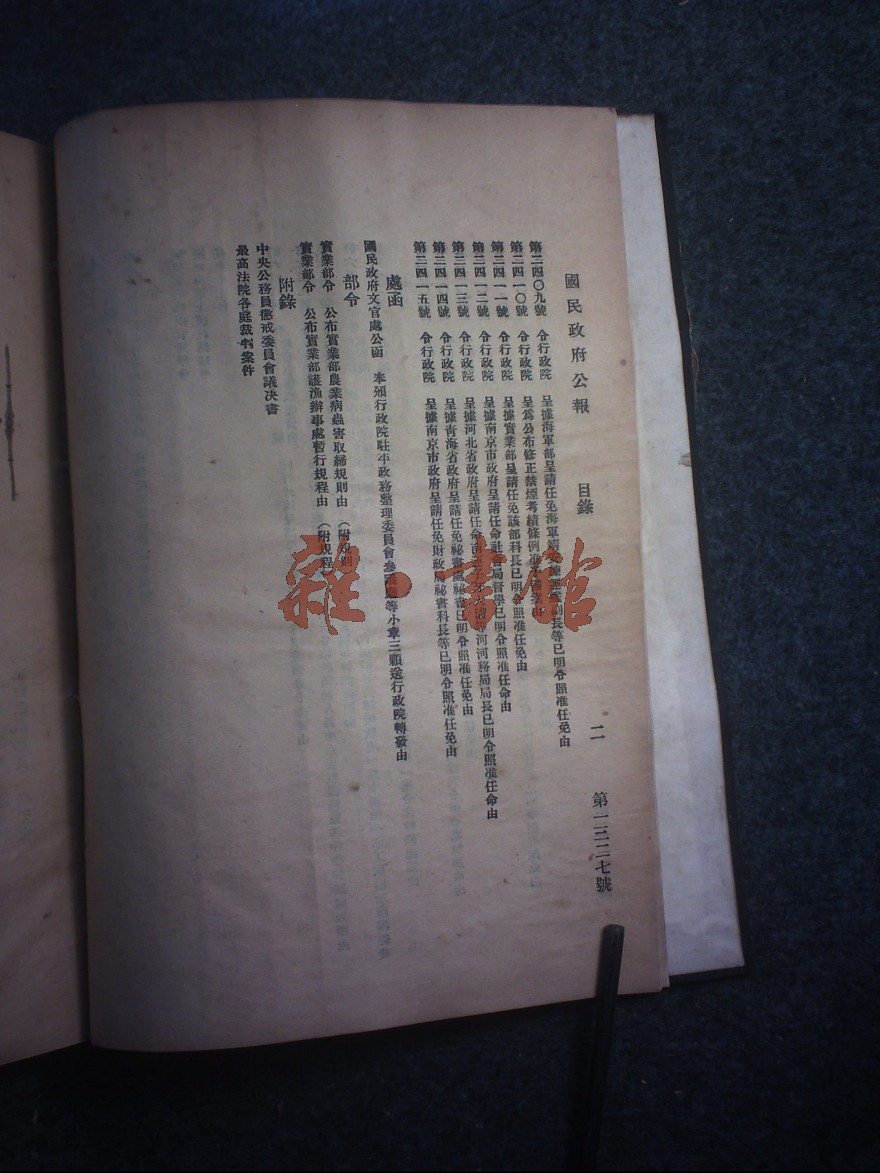 國民政府公報 目錄 二 第一二二七號
第二四〇九號 令行政院 呈據海軍部呈請任免海軍 長等已明令照准任免由
第二四一〇號 令行政院 呈為公布修正禁煙考績條例准
第二四一一號 令行政院 呈據實業部呈請任免該部科長已明令照准任免由
第二四一二號 令行政院 呈據南京市政府呈請任命社會局督學已明令照准任命由
第二四一三號 令行政院 呈據河北省政府呈請任命 等河河務局局長已明令照准任命由
第二四一四號 令行政院 呈據青海省政府呈請任免祕書處祕書已明令照准任免由
第二四一五號 令行政院 呈據南京市政府呈請任免財政局祕書科長等已明令照准任免由
處函
國民政府文官處公函 奉頒行政院駐平政務整理委員會參 等小章三顆送行政院轉發由
部令
實業部令 公布實業部農業病蟲害取締規則由 (附規則)
實業部令 公布實業部護漁辦事處暫行規程由 (附規程)
附錄
中央公務員懲戒委員會議決書
最高法院各庭裁判案件
雜·書館